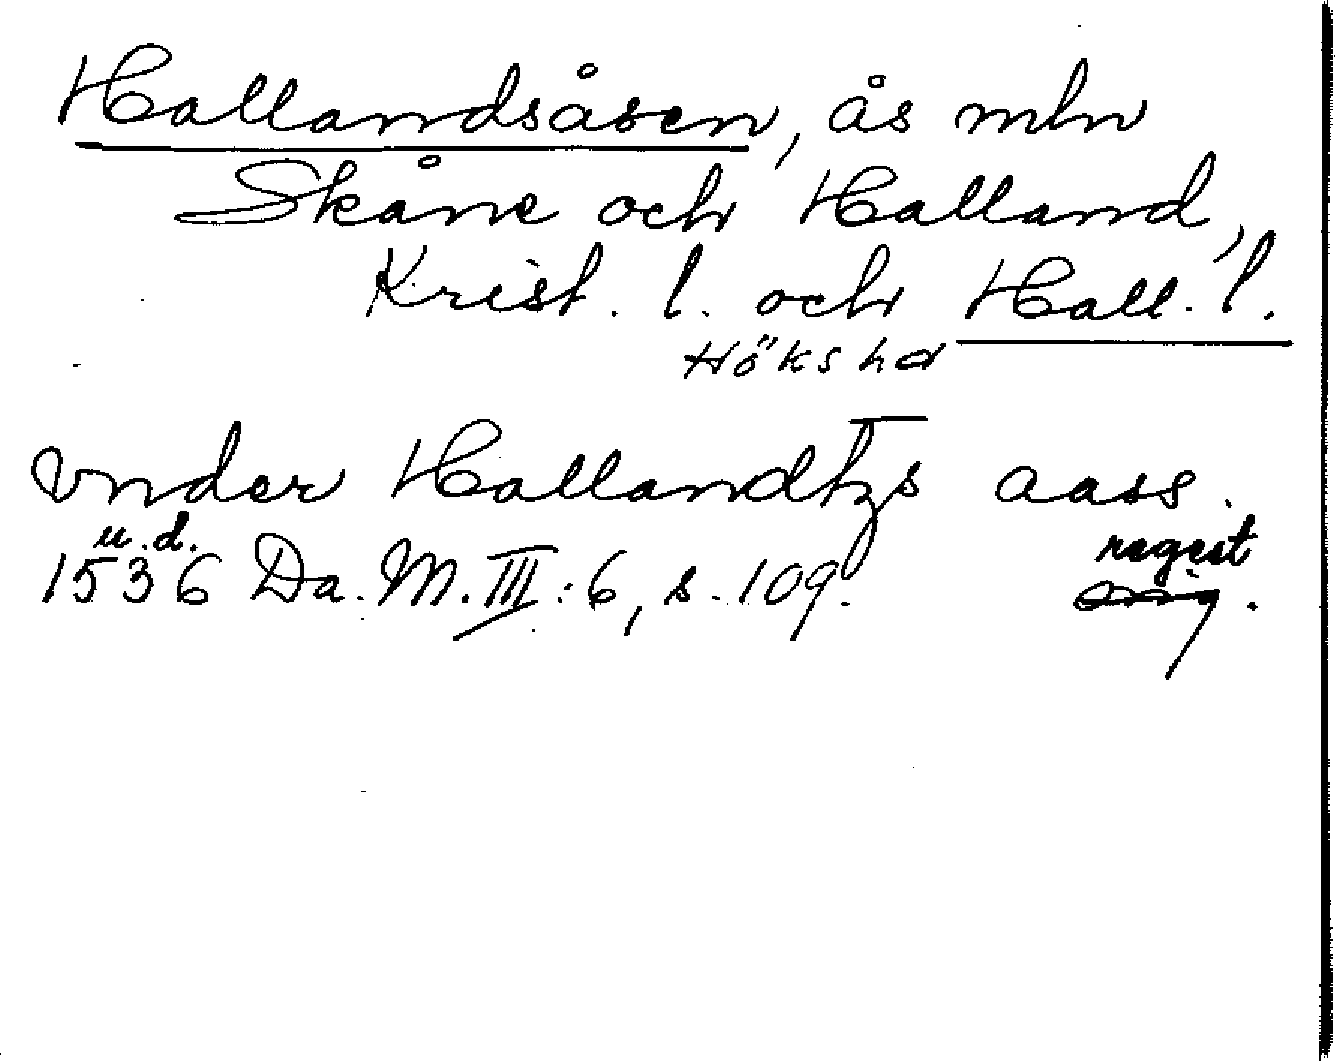 Hallandsåsen, ås mln
Skåne och Halland,
Krist. l. och Hall. l.
Höks hd
vnder Hallandtzs aass.
u.d. regest
1536 Da. M. III: 6, s. 109. orig.